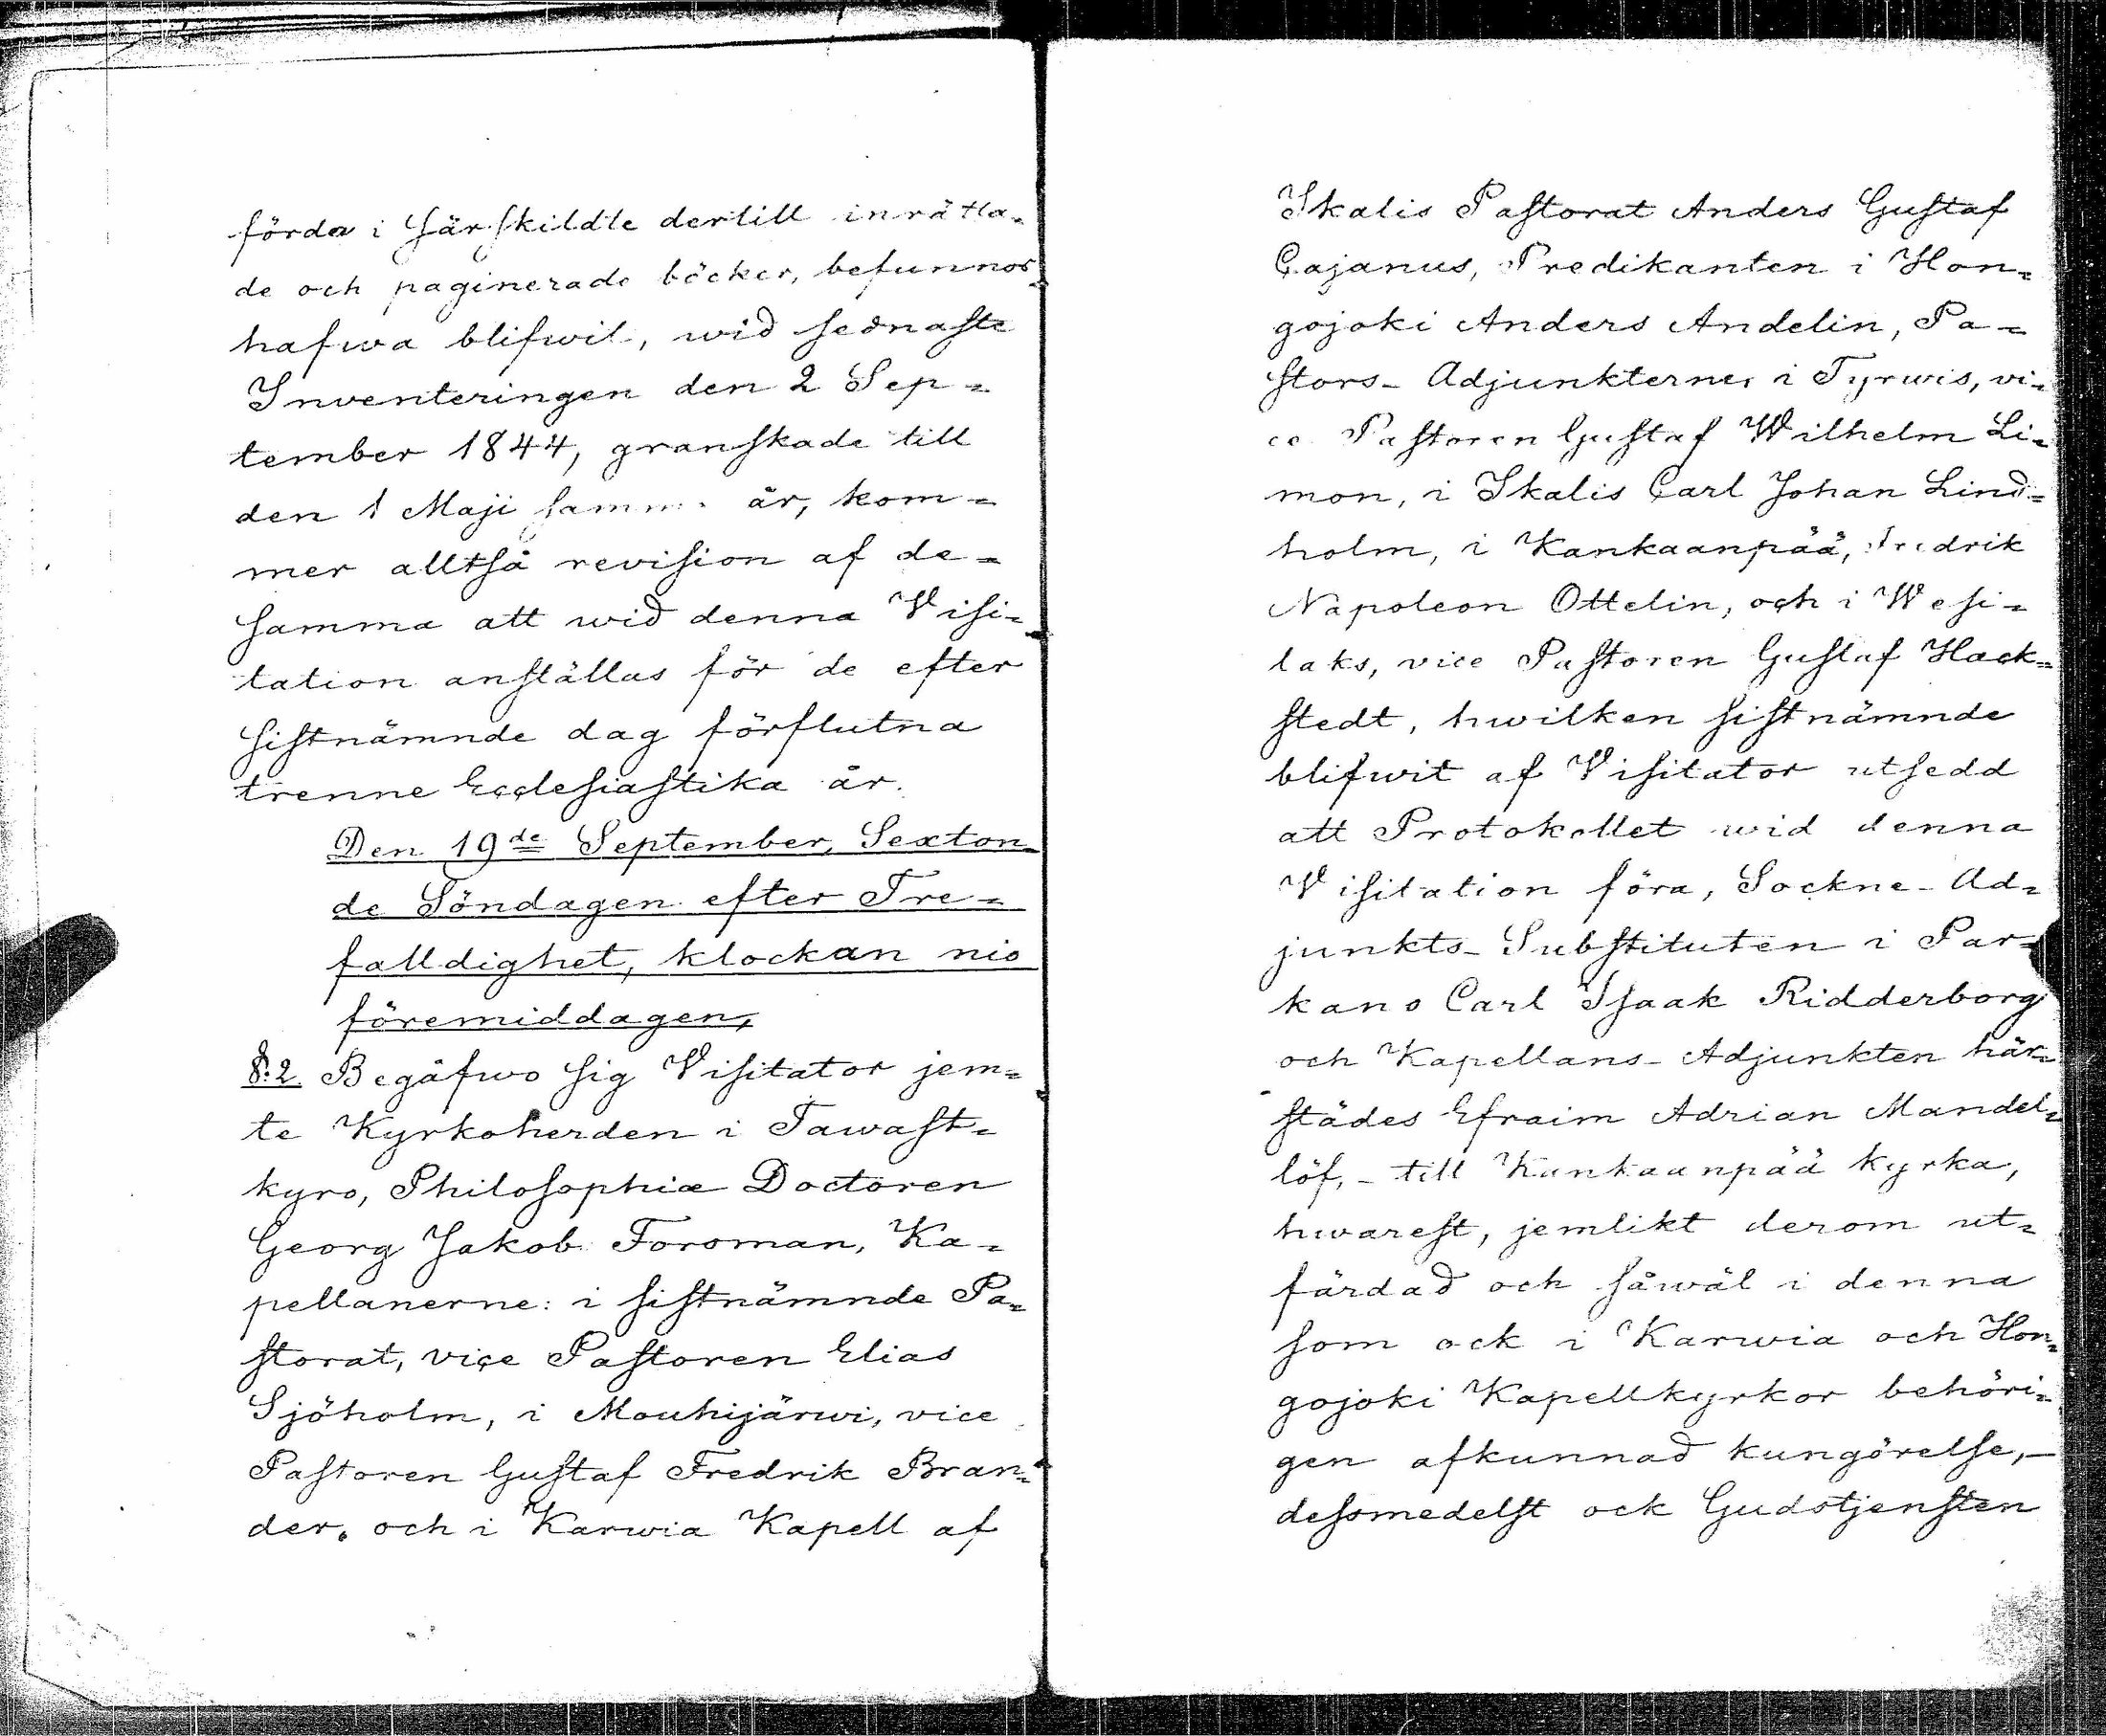 förda i särskildte dertill inrätta=
de och paginerade böcker, befunnos
hafwa blifwit, wid sednaste
Inventeringen den 2 Sep=
tember 1844, granskade till
den 1 Maji samma år, kom=
mer alltså revision af de=
samma att wid denna Visi=
tation anställas för de efter
sistnämnde dag förflutna
trenne Ecclesiastika år.
Den 19de September, Sexton=
de Söndagen efter Tre=
falldighet, klockan nio
föremiddagen,
§:2 Begåfwo sig Visitator jem=
te Kyrkoherden i Tawast=
kyro, Philosophiæ Doctoren
Georg Jakob Forsman, Ka=
pellanerne: i sistnämnde Pa=
storat, vice Pastoren Elias
Sjöholm, i Mouhijärwi, vice
Pastoren Gustaf Fredrik Bran=
der, och i Karwia Kapell af
Ikalis Pastorat Anders Gustaf
Cajanus, Predikanten i Hon=
gojoki Anders Andelin, Pa=
stors-Adjunkterne, i Tyrwis, vi=
ce Pastoren Gustaf Wilhelm Li=
mon, i Ikalis Carl Johan Lind=
holm, i Kankaanpää, Fredrik
Napoleon Ottelin, och i Wesi=
laks, vice Pastoren Gustaf Hack=
stedt, hwilken sistnämnde
blifwit af Visitator utsedd
att Protokollet wid denna
Visitation föra, Sockne-Ad=
junkts-Substituten i Par=
kano Carl Isaak Ridderborg
och Kapellans-Adjunkten här=
städes Efraim Adrian Mandel=
löf, - till Kankaanpää kyrka,
hwarest, jemlikt derom ut=
färdad och såwäl i denna
som ock i Karwia och Hon=
gojoki Kapellkyrkor behöri=
gen afkunnad kungörelse, -
dessmedelst ock Gudstjensten